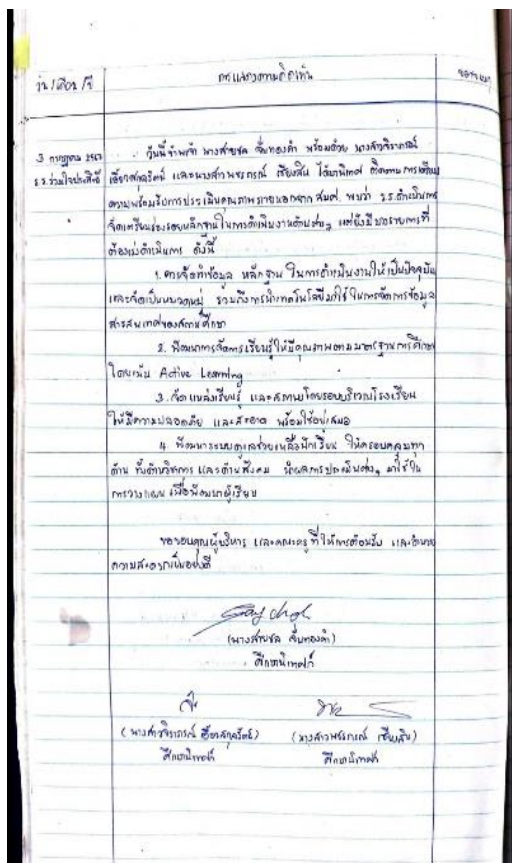 วัน/เดือน/ปี
การแสดงความคิดเห็น
3 กรกฎาคม 2567
ร.ร.ร่วมใจประสิทธิ์
วันนี้ข้าพเจ้า นางสายชล จั่นทองคำ พร้อมด้วย นางสาวจิราภรณ์
และนางสาวพรรณกรณ์ เชียงสิน ได้มานิเทศ ติดตาม การเตรียม
ความพร้อมรับการประเมินคุณภาพภายนอกจาก สมศ. พบว่า ร.ร.ดำเนินการ
จัดเตรียมร่องรอยหลักฐานในการดำเนินงานด้านต่างๆ แต่ยังมีบางรายการที่
ต้องเร่งดำเนินการ ดังนี้
1. ควรจัดทำข้อมูล หลักฐาน ในการดำเนินงานให้เป็นปัจจุบัน
และจัดเป็นหมวดหมู่ รวมถึงการนำเทคโนโลยีมาใช้ในการจัดการข้อมูล
สารสนเทศของสถานศึกษา
2. พัฒนาการจัดการเรียนรู้ให้มีคุณภาพตามมาตรฐานการศึกษา
โดยเน้น Active Learning
3. จัดแหล่งเรียนรู้ และสภาพโดยรอบบริเวณโรงเรียน
ให้มีความปลอดภัย และสะอาด พร้อมใช้อยู่เสมอ
4. พัฒนาระบบดูแลช่วยเหลือนักเรียน ให้ครอบคลุมทุก
ด้าน ทั้งด้านวิชาการ และด้านสังคม นำผลการประเมินต่างๆ มาใช้ใน
การวางแผน เพื่อพัฒนาผู้เรียน
ขอขอบคุณผู้บริหาร และคณะครู ที่ให้การต้อนรับ และอำนวย
ความสะดวกเป็นอย่างดี
(นางสายชล จั่นทองคำ)
ศึกษานิเทศก์
(นางสาวจิราภรณ์
ศึกษานิเทศก์
(นางสาวพรรณกรณ์ เชียงสิน)
ศึกษานิเทศก์